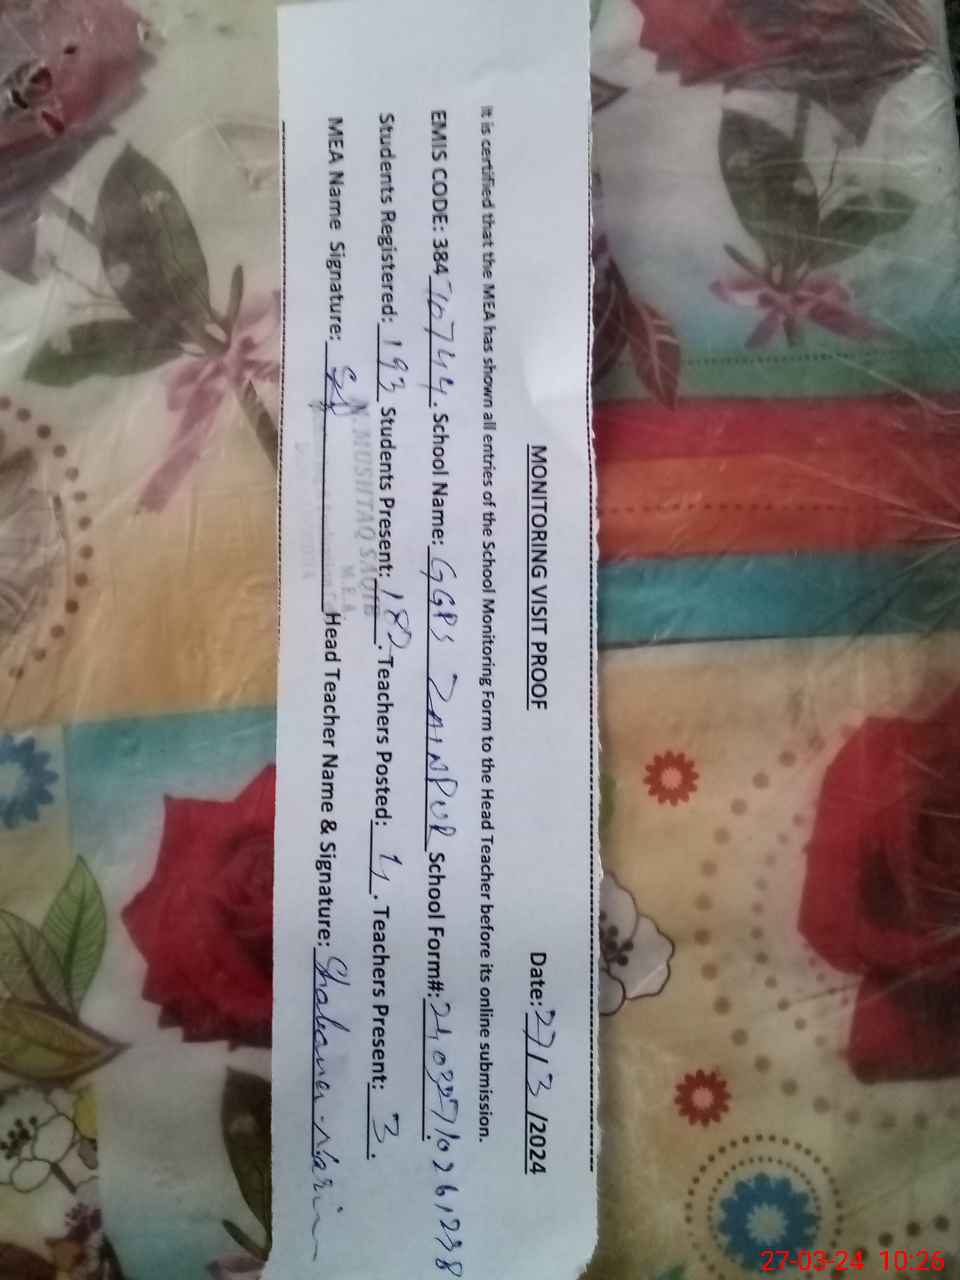 MONITORING VISIT PROOF Date: 27/3/2024
It is certified that the MEA has shown all entries of the School Monitoring Form to the Head Teacher before its online submission.
EMIS CODE: 384 10744. School Name: GGPS ZAINPUR School Form#:
Students Registered: 193 Students Present: 182. Teachers Posted: 4. Teachers Present: 3.
MEA Name Signature: Head Teacher Name & Signature: Shabana
M. MUSHTAQ
M.E.A
27-03-24 10:26